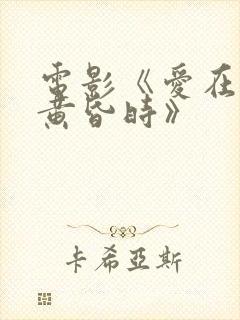 電影《愛在
黃昏時》
卡希亞斯